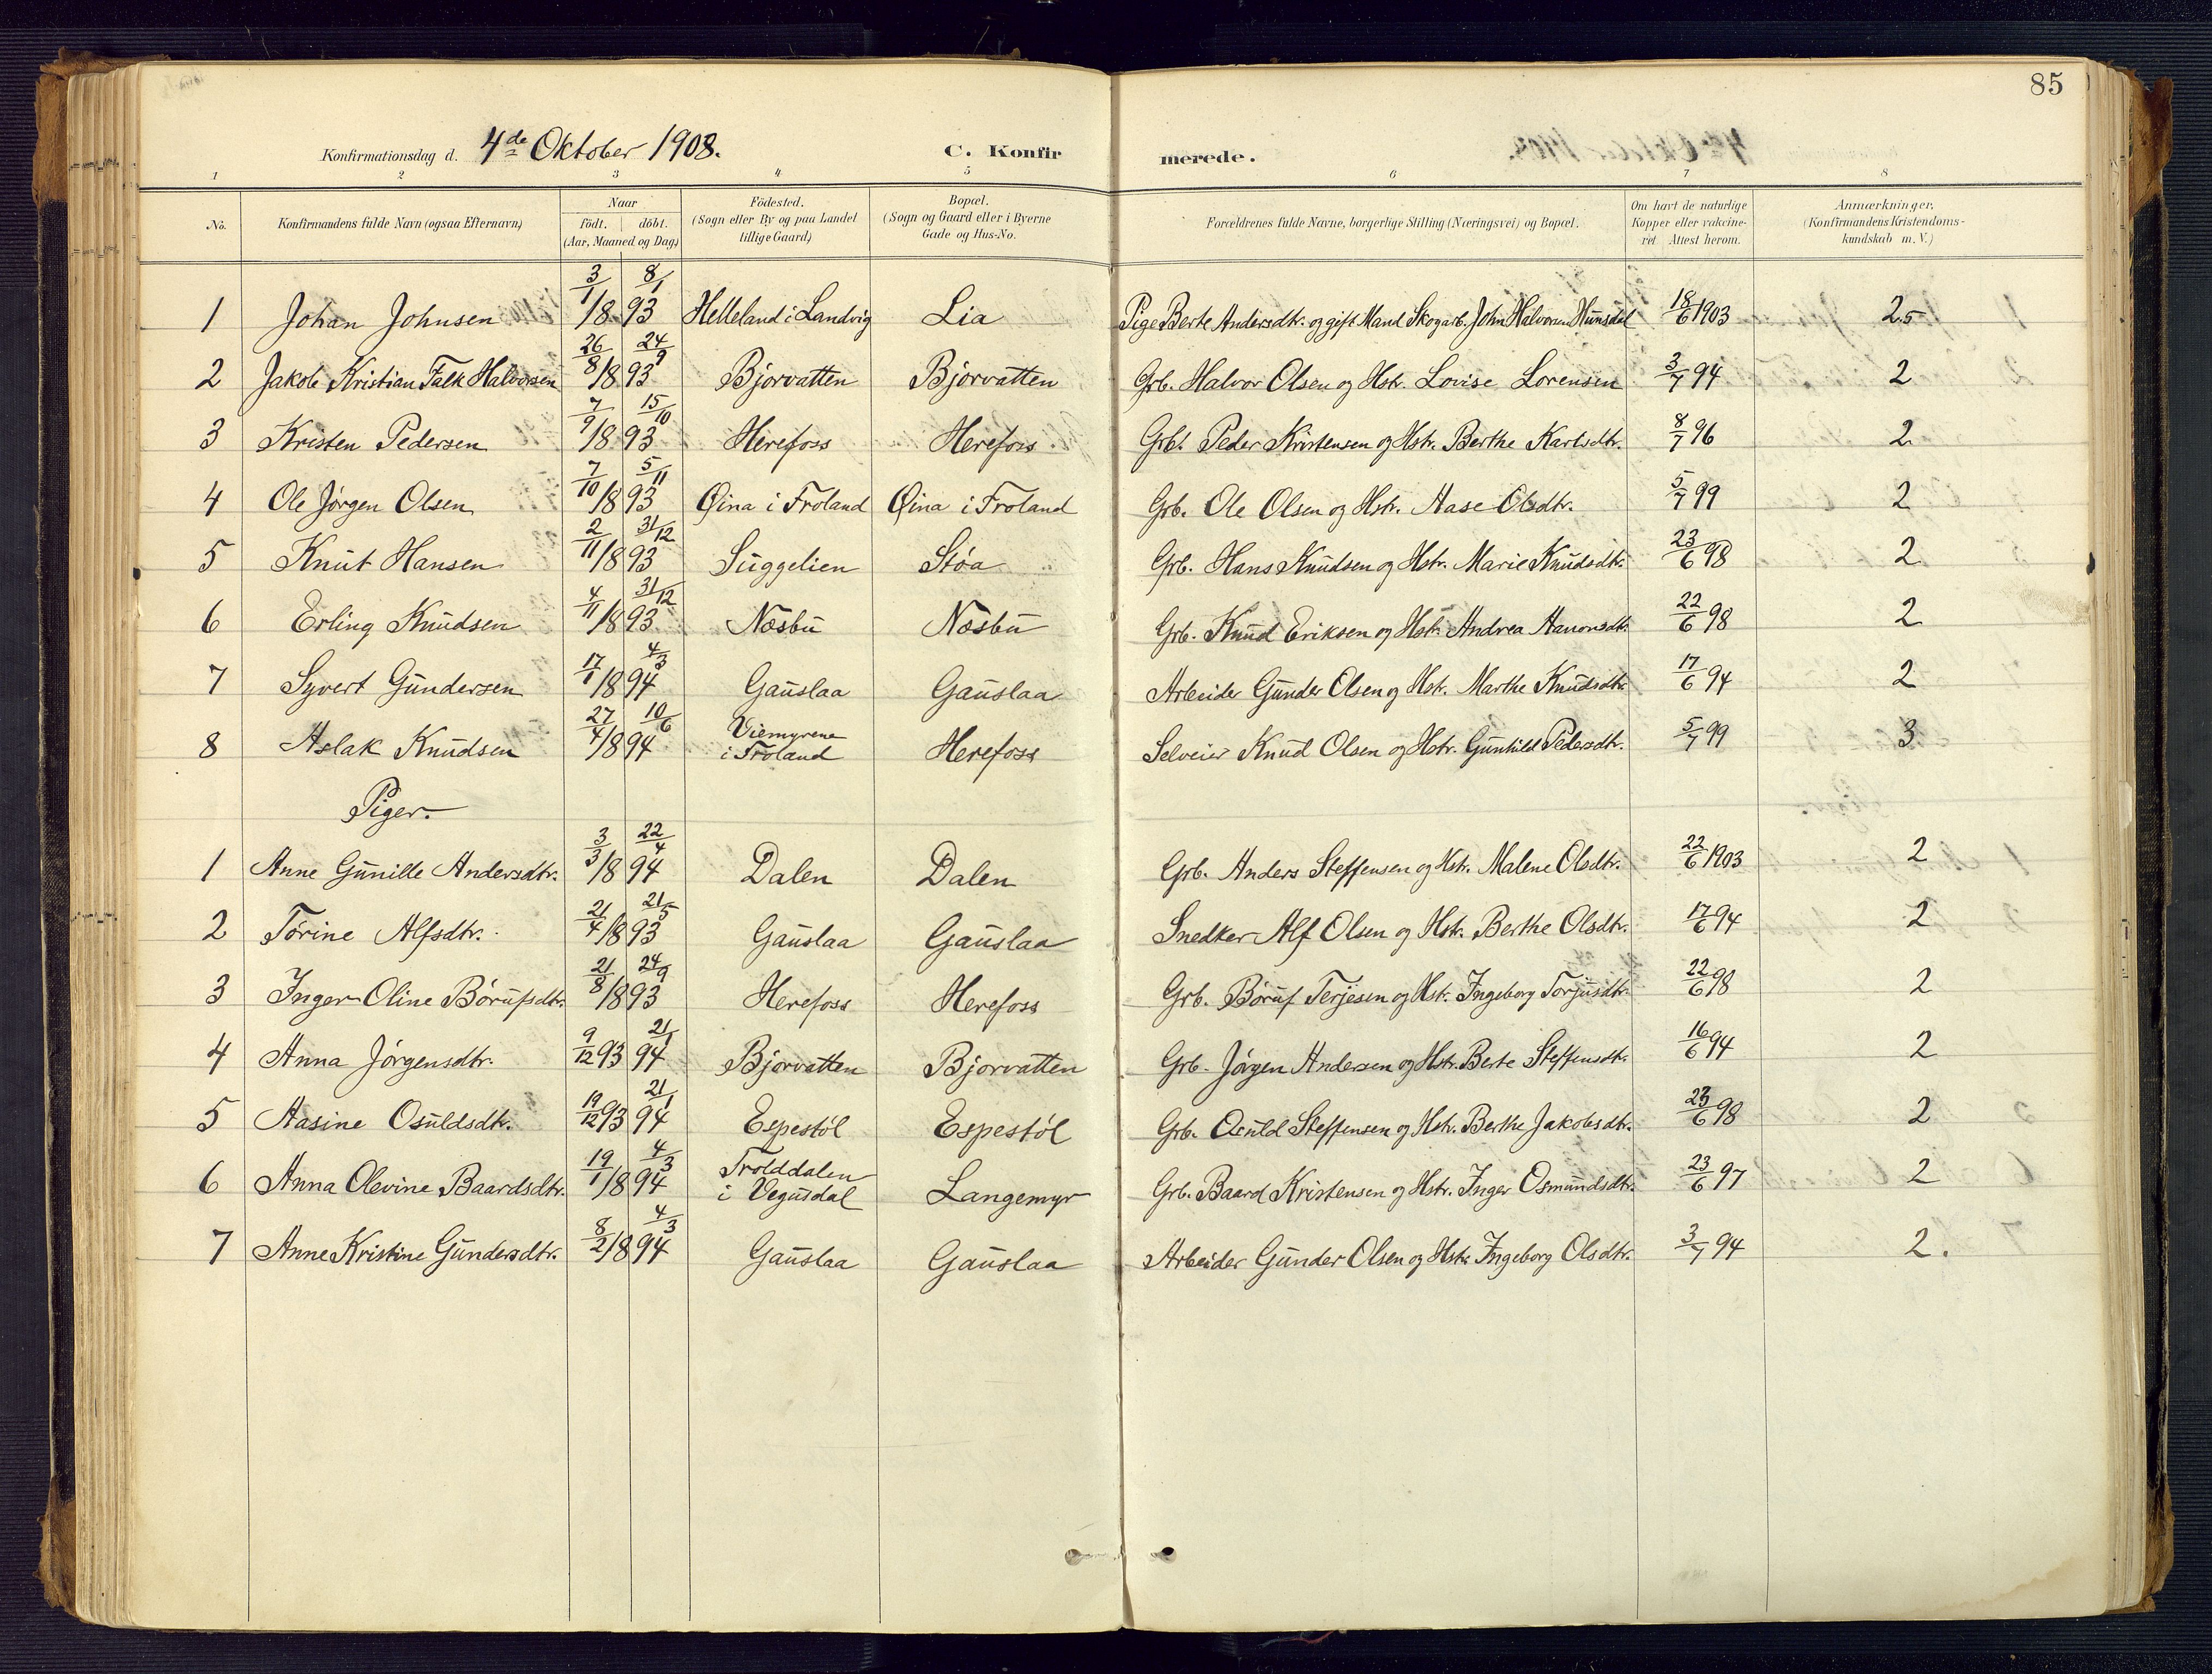 85
Konfirmationsdag d. 4de Oktober 1908. C. Konfirmerede.
1 2 3 4 5 6 7 8
No. Konfirmandens fulde Navn (ogsaa Efternavn) Naar født. døbt. (Aar, Maaned og Dag) Födested. (Sogn eller By og paa Landet tillige Gaard) Bopæl. (Sogn og Gaard eller i Byerne Gade og Hus-No. Forældrenes fulde Navne, borgerlige Stilling (Næringsvei) og Bopæl. Om havt de naturlige Kopper eller vakcineret. Attest herom. Anmærkninger. (Konfirmandens Kristendomskundskab m. V.)
1 Johan Johnsen 3/1 1893 8/1 Helleland i Landvig Lia Pige Berte Andersdtr. og gift Mand Skogarb. John Halvorsen Hunsdal 18/6 1903 2.5
2 Jakob Kristian Falk Halvorsen 26/8 1893 24/9 Bjorvatten Bjorvatten Grb. Halvor Olsen og Hstr. Lovise Lorensen 3/7 94 2
3 Kristen Pedersen 7/9 1893 15/10 Herefoss Herefoss Grb. Peder Kristensen og Hstr. Berthe Karlsdtr. 8/7 96 2
4 Ole Jørgen Olsen 7/10 1893 5/11 Øina i Froland Øina i Froland Grb. Ole Olsen og Hstr. Aase Olsdtr. 5/7 99 2
5 Knut Hansen 2/11 1893 31/12 Suggelien Støa Grb. Hans Knudsen og Hstr. Marie Knudsdtr. 23/6 98 2
6 Erling Knudsen 4/11 1893 31/12 Næsbu Næsbu Grb. Knud Eriksen og Hstr. Andrea Aanonsdtr. 22/6 98 2
7 Syvert Gundersen 17/1 1894 4/3 Gauslaa Gauslaa Arbeider Gunder Olsen og Hstr. Marthe Knudsdtr. 17/6 94 2
8 Aslak Knudsen 27/4 1894 10/6 Viemyrene i Froland Herefoss Selveier Knud Olsen og Hstr. Gunhild Pedersdtr. 5/7 99 3
Piger.
1 Anne Gunille Andersdtr. 3/3 1894 22/4 Dalen Dalen Grb. Anders Steffensen og Hstr. Malene Olsdtr. 22/6 1903 2
2 Torine Alfsdtr. 21/4 1893 21/5 Gauslaa Gauslaa Snedker Alf Olsen og Hstr. Berthe Olsdtr. 17/6 94 2
3 Inger Oline Børufsdtr. 21/8 1893 24/9 Herefoss Herefoss Grb. Børuf Terjesen og Hstr. Ingeborg Torjusdtr. 22/6 98 2
4 Anna Jørgensdtr. 9/12 93 21/1 94 Bjorvatten Bjorvatten Grb. Jørgen Andersen og Hstr. Berte Steffensdtr. 16/6 94 2
5 Aasine Osuldsdtr. 19/12 93 21/1 94 Espestøl Espestøl Grb. Osuld Steffensen og Hstr. Berthe Jakobsdtr. 23/6 98 2
6 Anna Olevine Baardsdtr. 19/1 1894 4/3 Trolddalen i Vegusdal Langemyr Grb. Baard Kristensen og Hstr. Inger Osmundsdtr. 23/6 97 2
7 Anne Kristine Gundersdtr. 8/2 1894 4/3 Gauslaa Gauslaa Arbeider Gunder Olsen og Hstr. Ingeborg Olsdtr. 3/7 94 2.